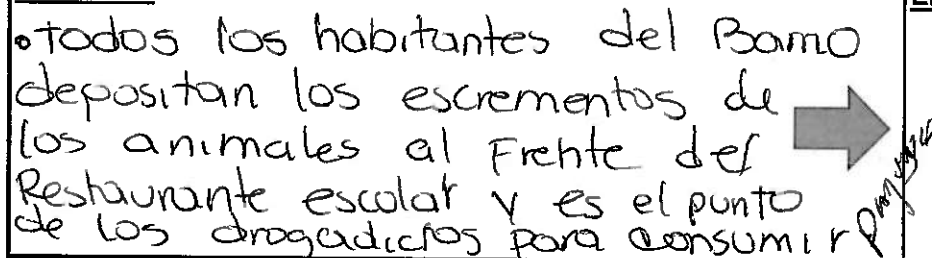 • todos los habitantes del Barrio
depositan los escrementos de
los animales al Frente del
Restaurante escolar y es el punto
de los drogadictos para consumir